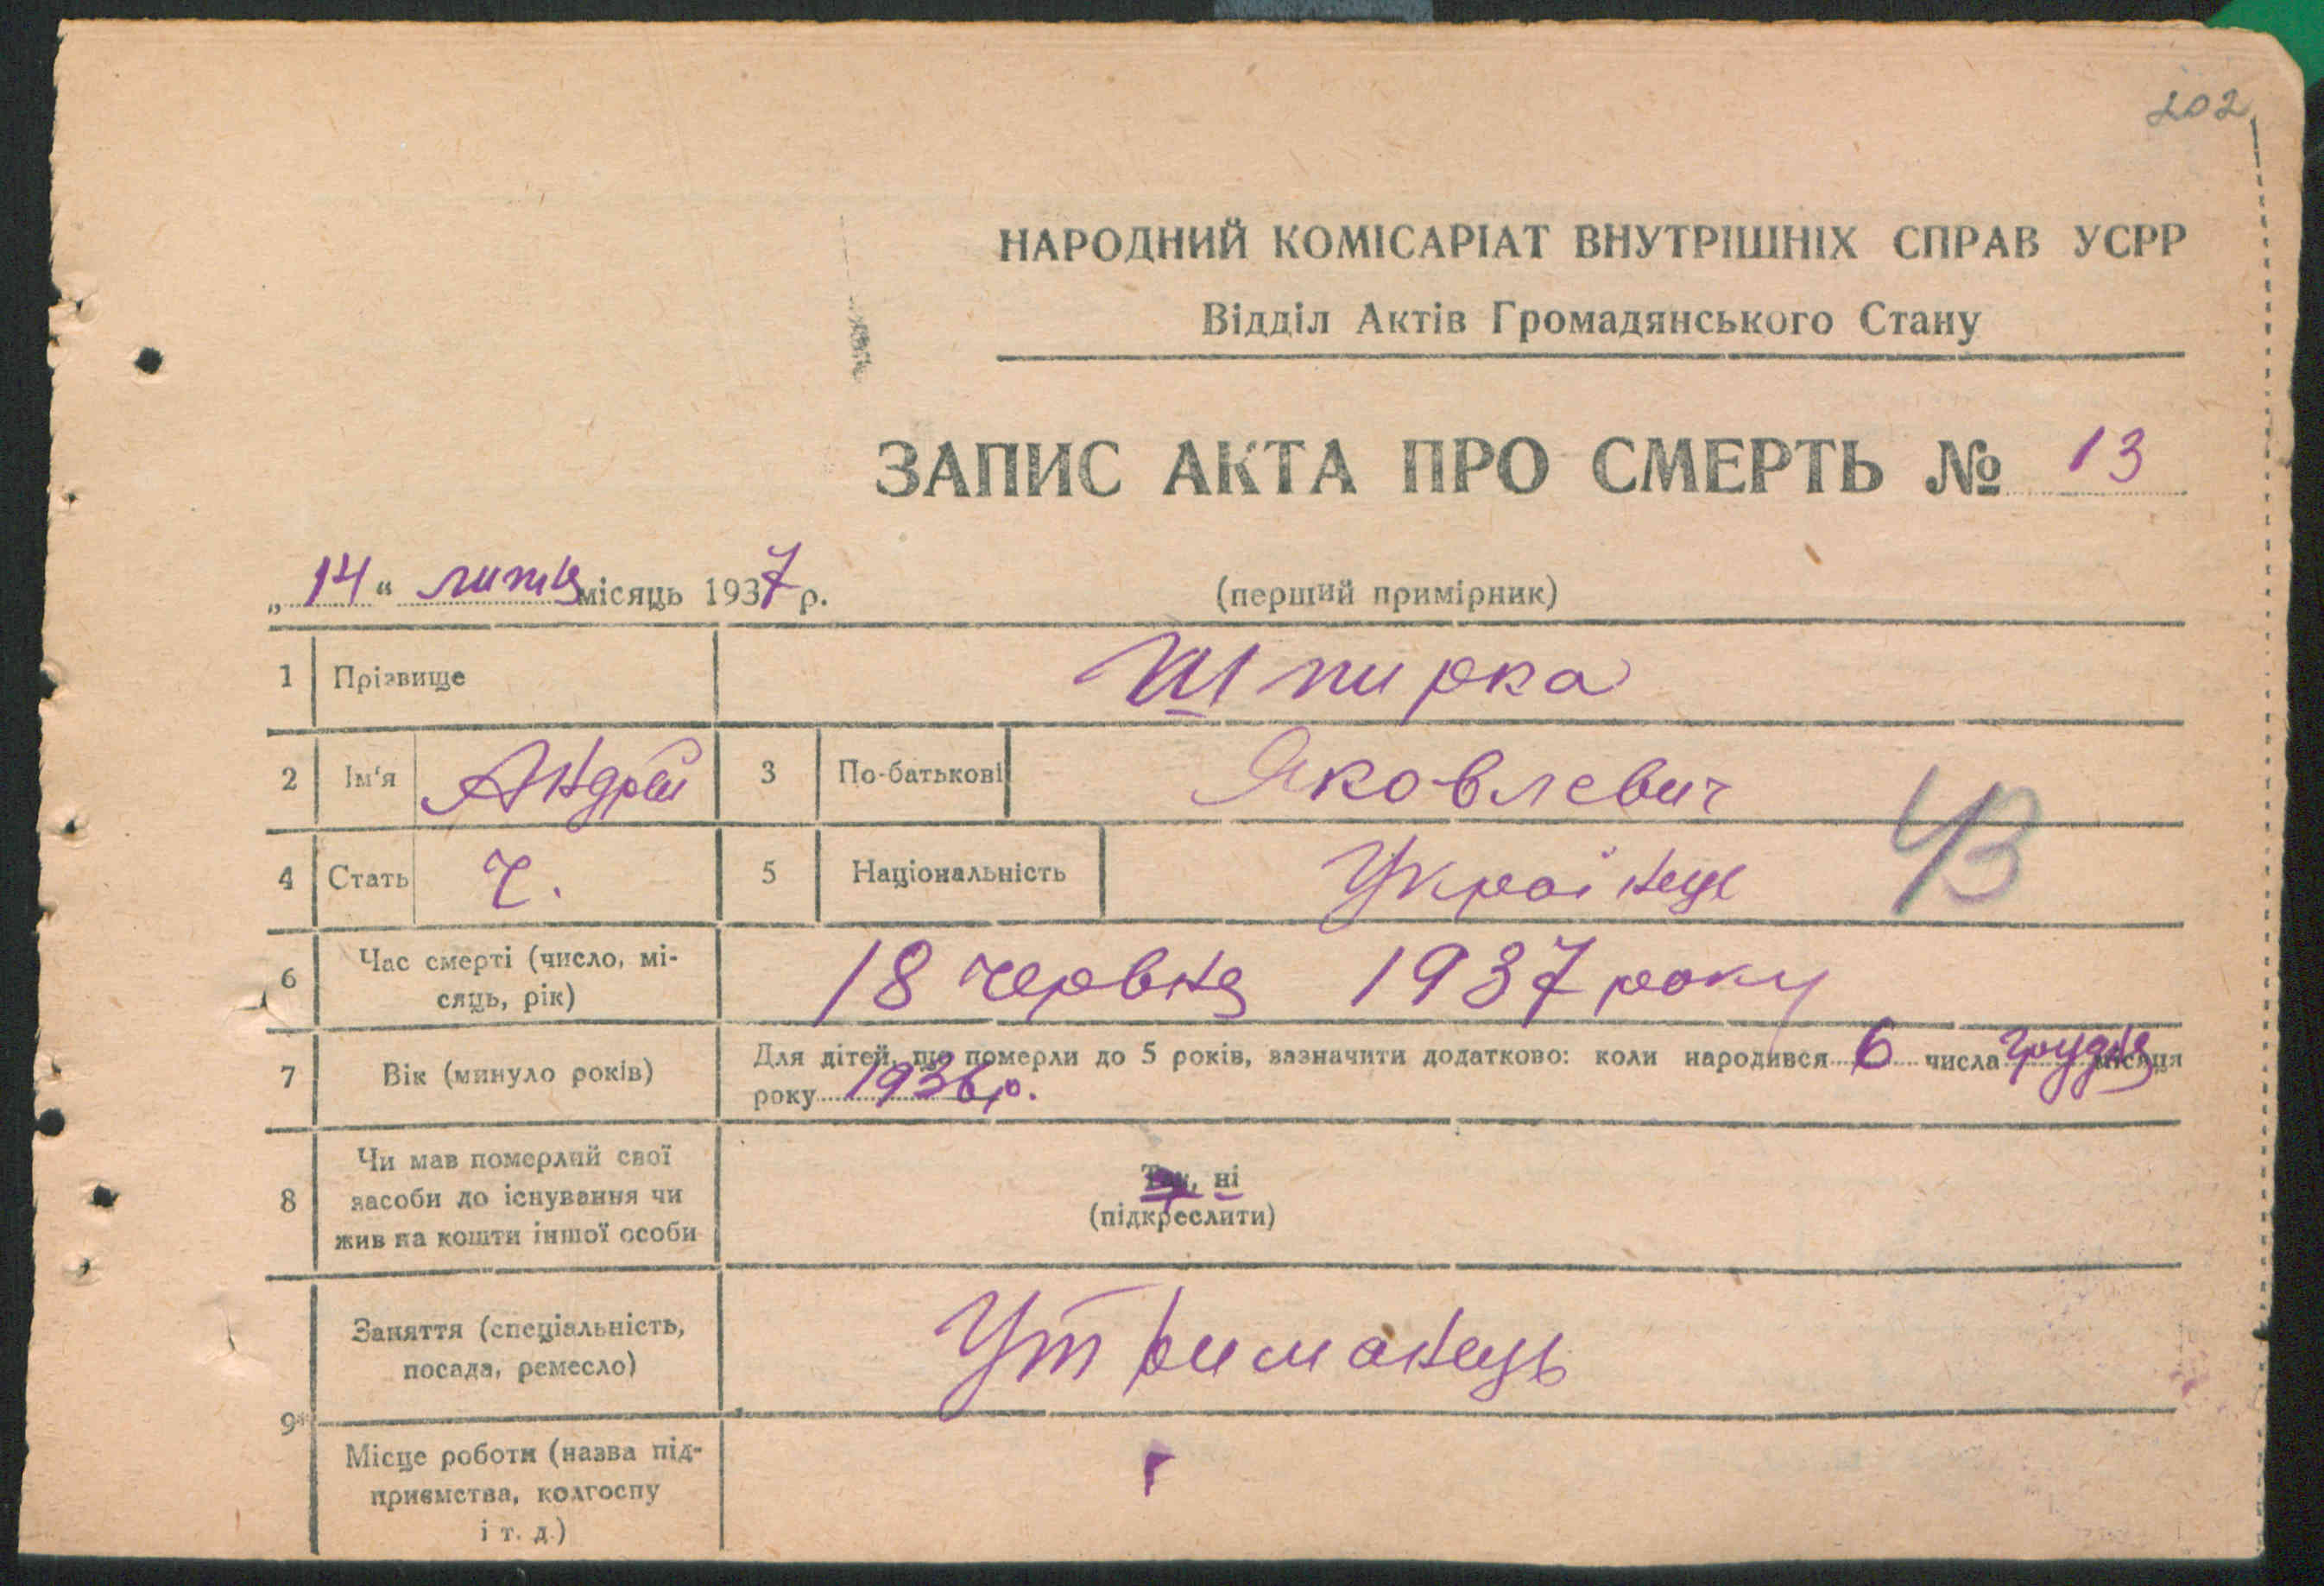 202
НАРОДНИЙ КОМІСАРІАТ ВНУТРІШНІХ СПРАВ УСРР
Відділ Актів Громадянського Стану
ЗАПИС АКТА ПРО СМЕРТЬ № 13
„14“ липня місяць 1937 р.
(перший примірник)
1 Прізвище Шпирка
2 Ім'я Андрей 3 По-батькові Яковлевич
4 Стать Ч. 5 Національність Українець
6 Час смерті (число, мі-
сяць, рік) 18 червня 1937 року
7 Вік (минуло років) Для дітей, що померли до 5 років, зазначити додатково: коли народився 6 числа грудня місяця
року 1936 р.
8 Чи мав померлий свої
засоби до існування чи
жив на кошти іншої особи
Так, ні
(підкреслити)
9 Заняття (спеціальність,
посада, ремесло) Утриманець
Місце роботи (назва під-
приємства, колгоспу
і т. д.)